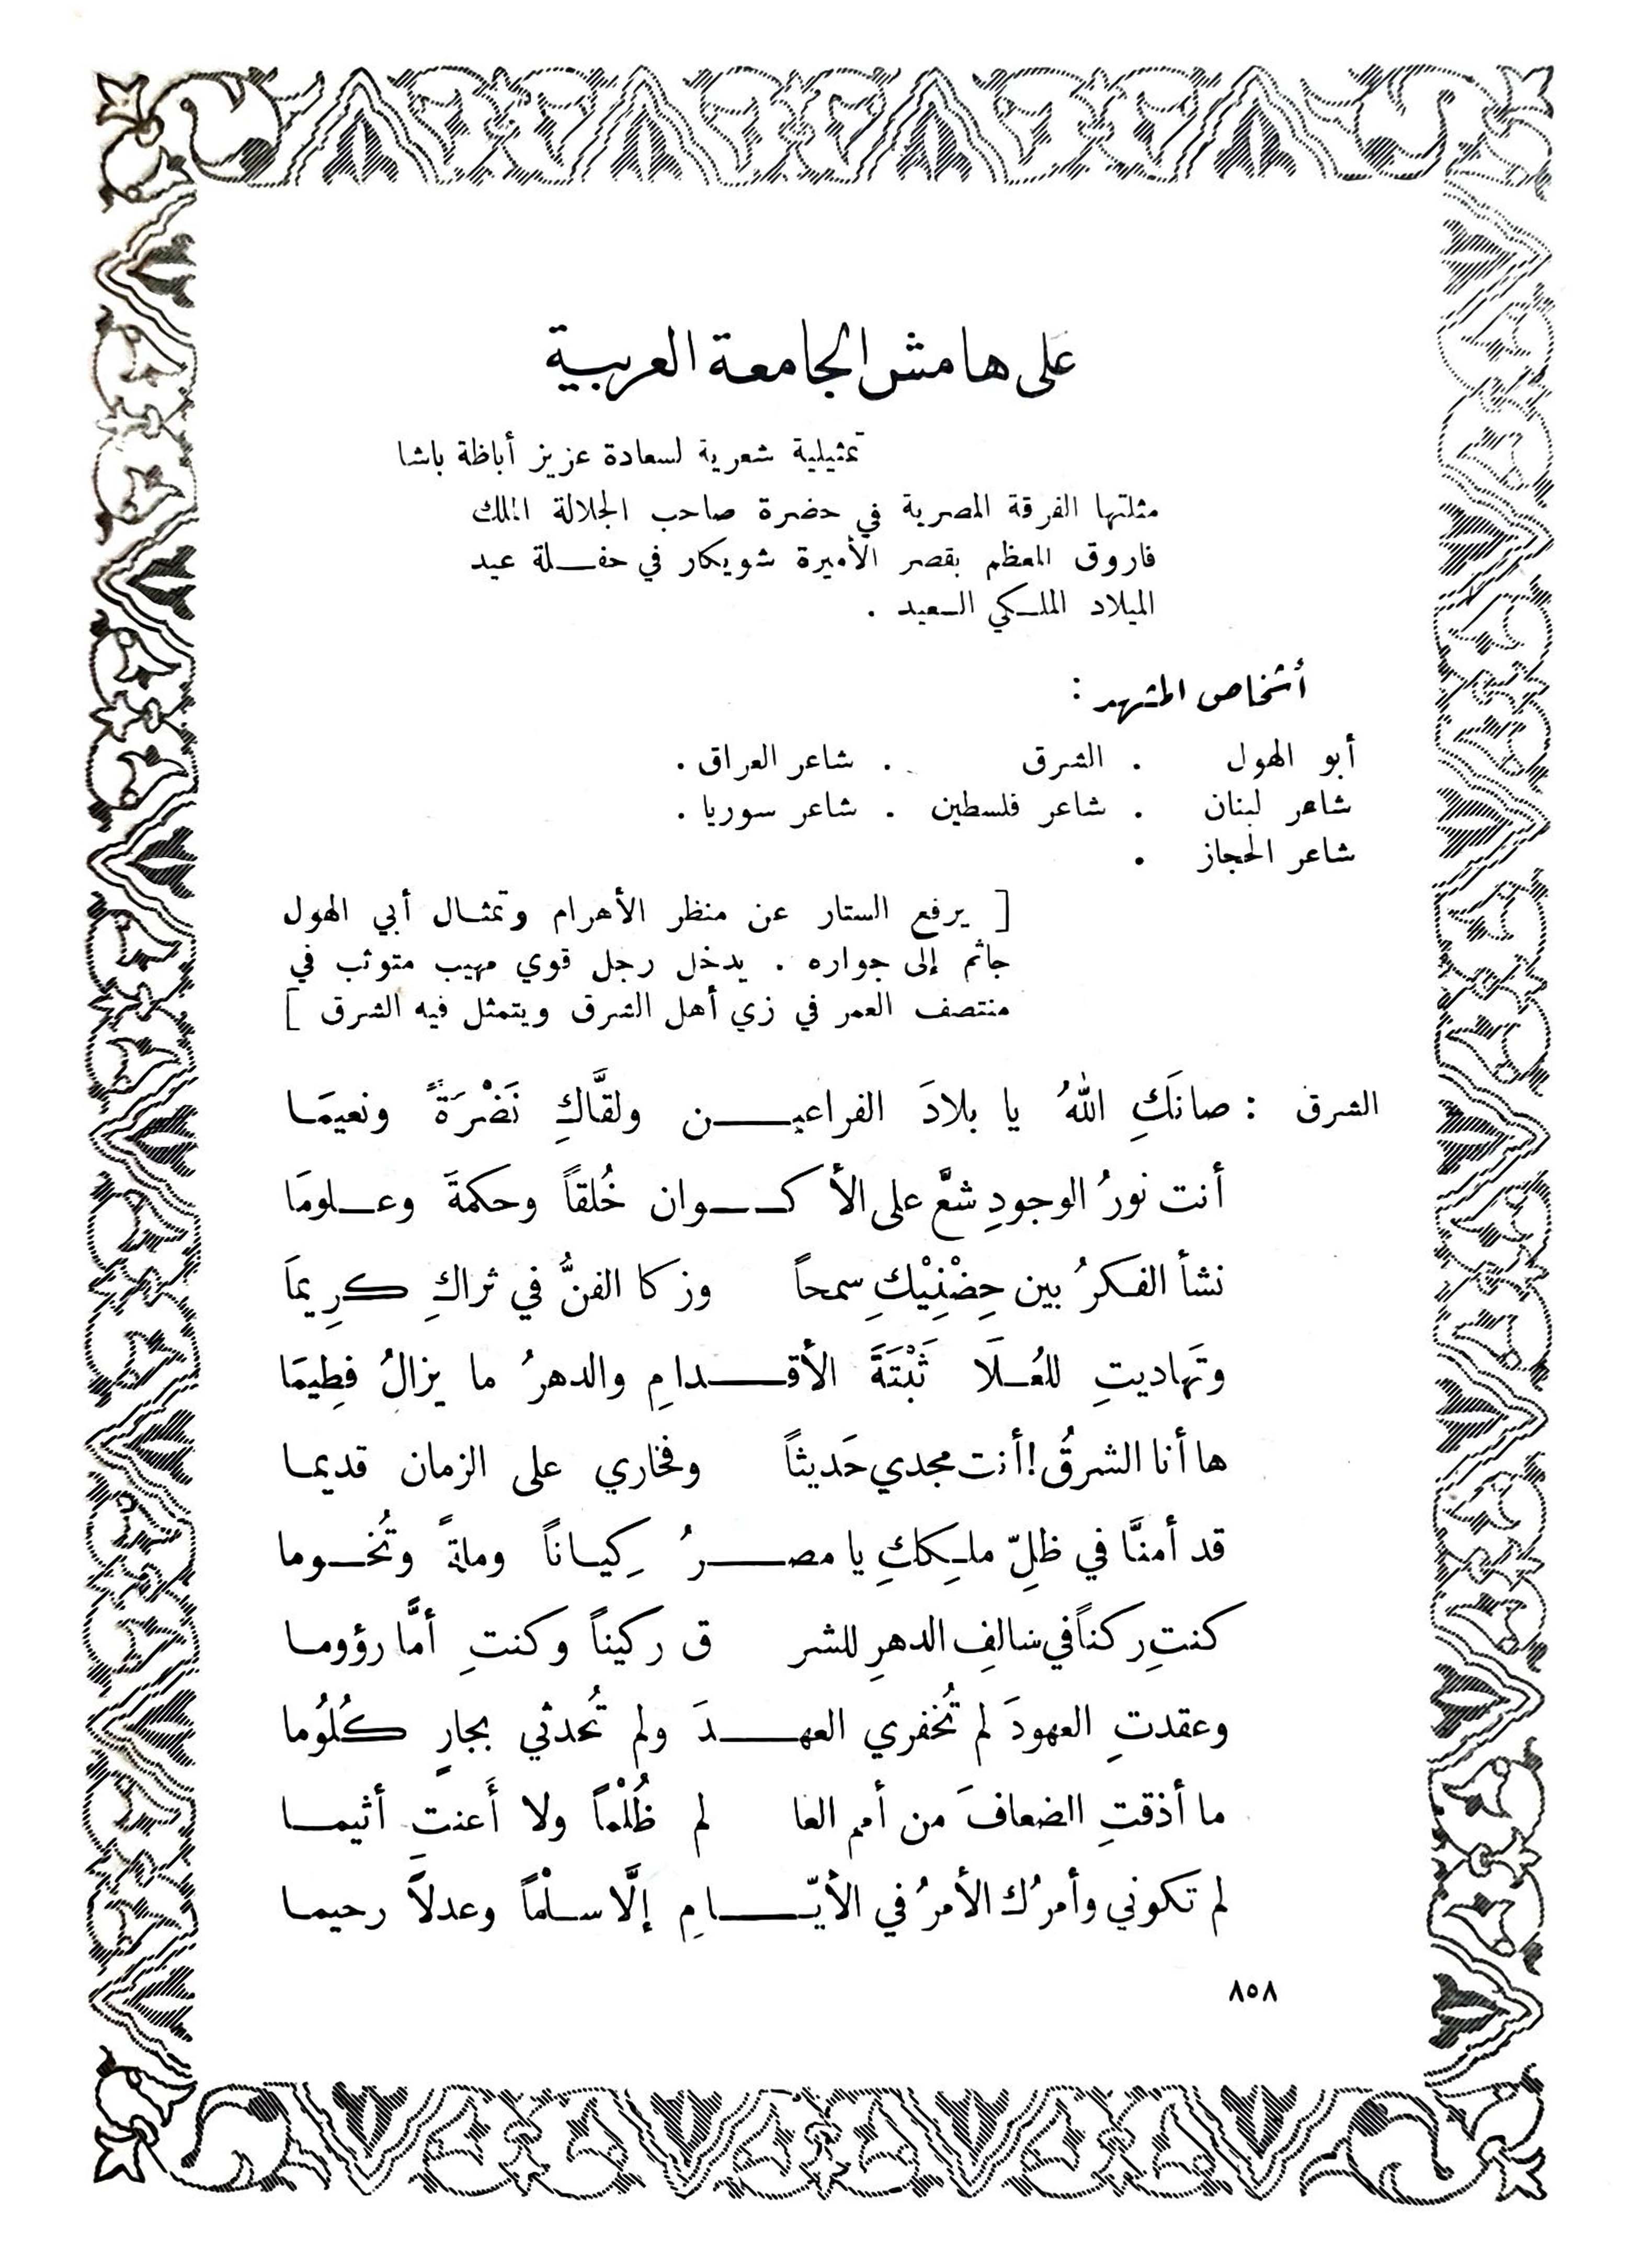 على هامش الجامعة العربية
تمثيلية شعرية لسعادة عزيز أباظة باشا
مثلتها الفرقة المصرية في حضرة صاحب الجلالة الملك
فاروق المعظم بقصر الأميرة شويكار في حفـــلة عيد
الميلاد الملـكي السعيد .
أشخاص المشهد :
أبو الهول . الشرق . شاعر العراق .
شاعر لبنان . شاعر فلسطين . شاعر سوريا .
شاعر الحجاز .
[ يرفع الستار عن منظر الأهرام وتمثـال أبي الهول
جاثم إلى جواره . يدخل رجل قوي مهيب متوثب في
منتصف العمر في زي أهل الشرق ويتمثل فيه الشرق ]
الشرق : صانَكِ اللهُ يا بلادَ الفراعيـــــن ولقَّاكِ نَضْرَةً ونعيمَـا
أنت نورُ الوجودِ شعَّ على الأ كـــوان خُلقاً وحكمةَ وعـلومَا
نشأ الفكرُ بين حِضْنِيْكِ سمحاً وزكا الفنُّ في ثراكِ كرِيمَا
وتَهاديتِ للعُـلَا ثَبْتَةَ الأقـــــدامِ والدهرُ ما يزالُ فطِيمَا
ها أنا الشرقُ! أنت مجدي حَديثاً وفخاري على الزمان قديمـا
قد أمنَّا في ظلِّ ملـكِكِ يا مصـــــرُ كِيـاناً وملةً وتُخـوما
كنتِ ركناً في سالفِ الدهرِ للشر ق ركيناً وكنتِ أمَّا رؤومـا
وعقدتِ العهودَ لم تُخفري العهـــــدَ ولم تُحدثي بجارٍ كُلُوما
ما أذقتِ الضعافَ من أمم العا لم ظُلْماً ولا أَعنتِ أثيمـا
لم تكوني وأمرُك الأمرُ في الأيّـــــامِ إلَّا سـلْماً وعدلاً رحيمـا
٨٥٨